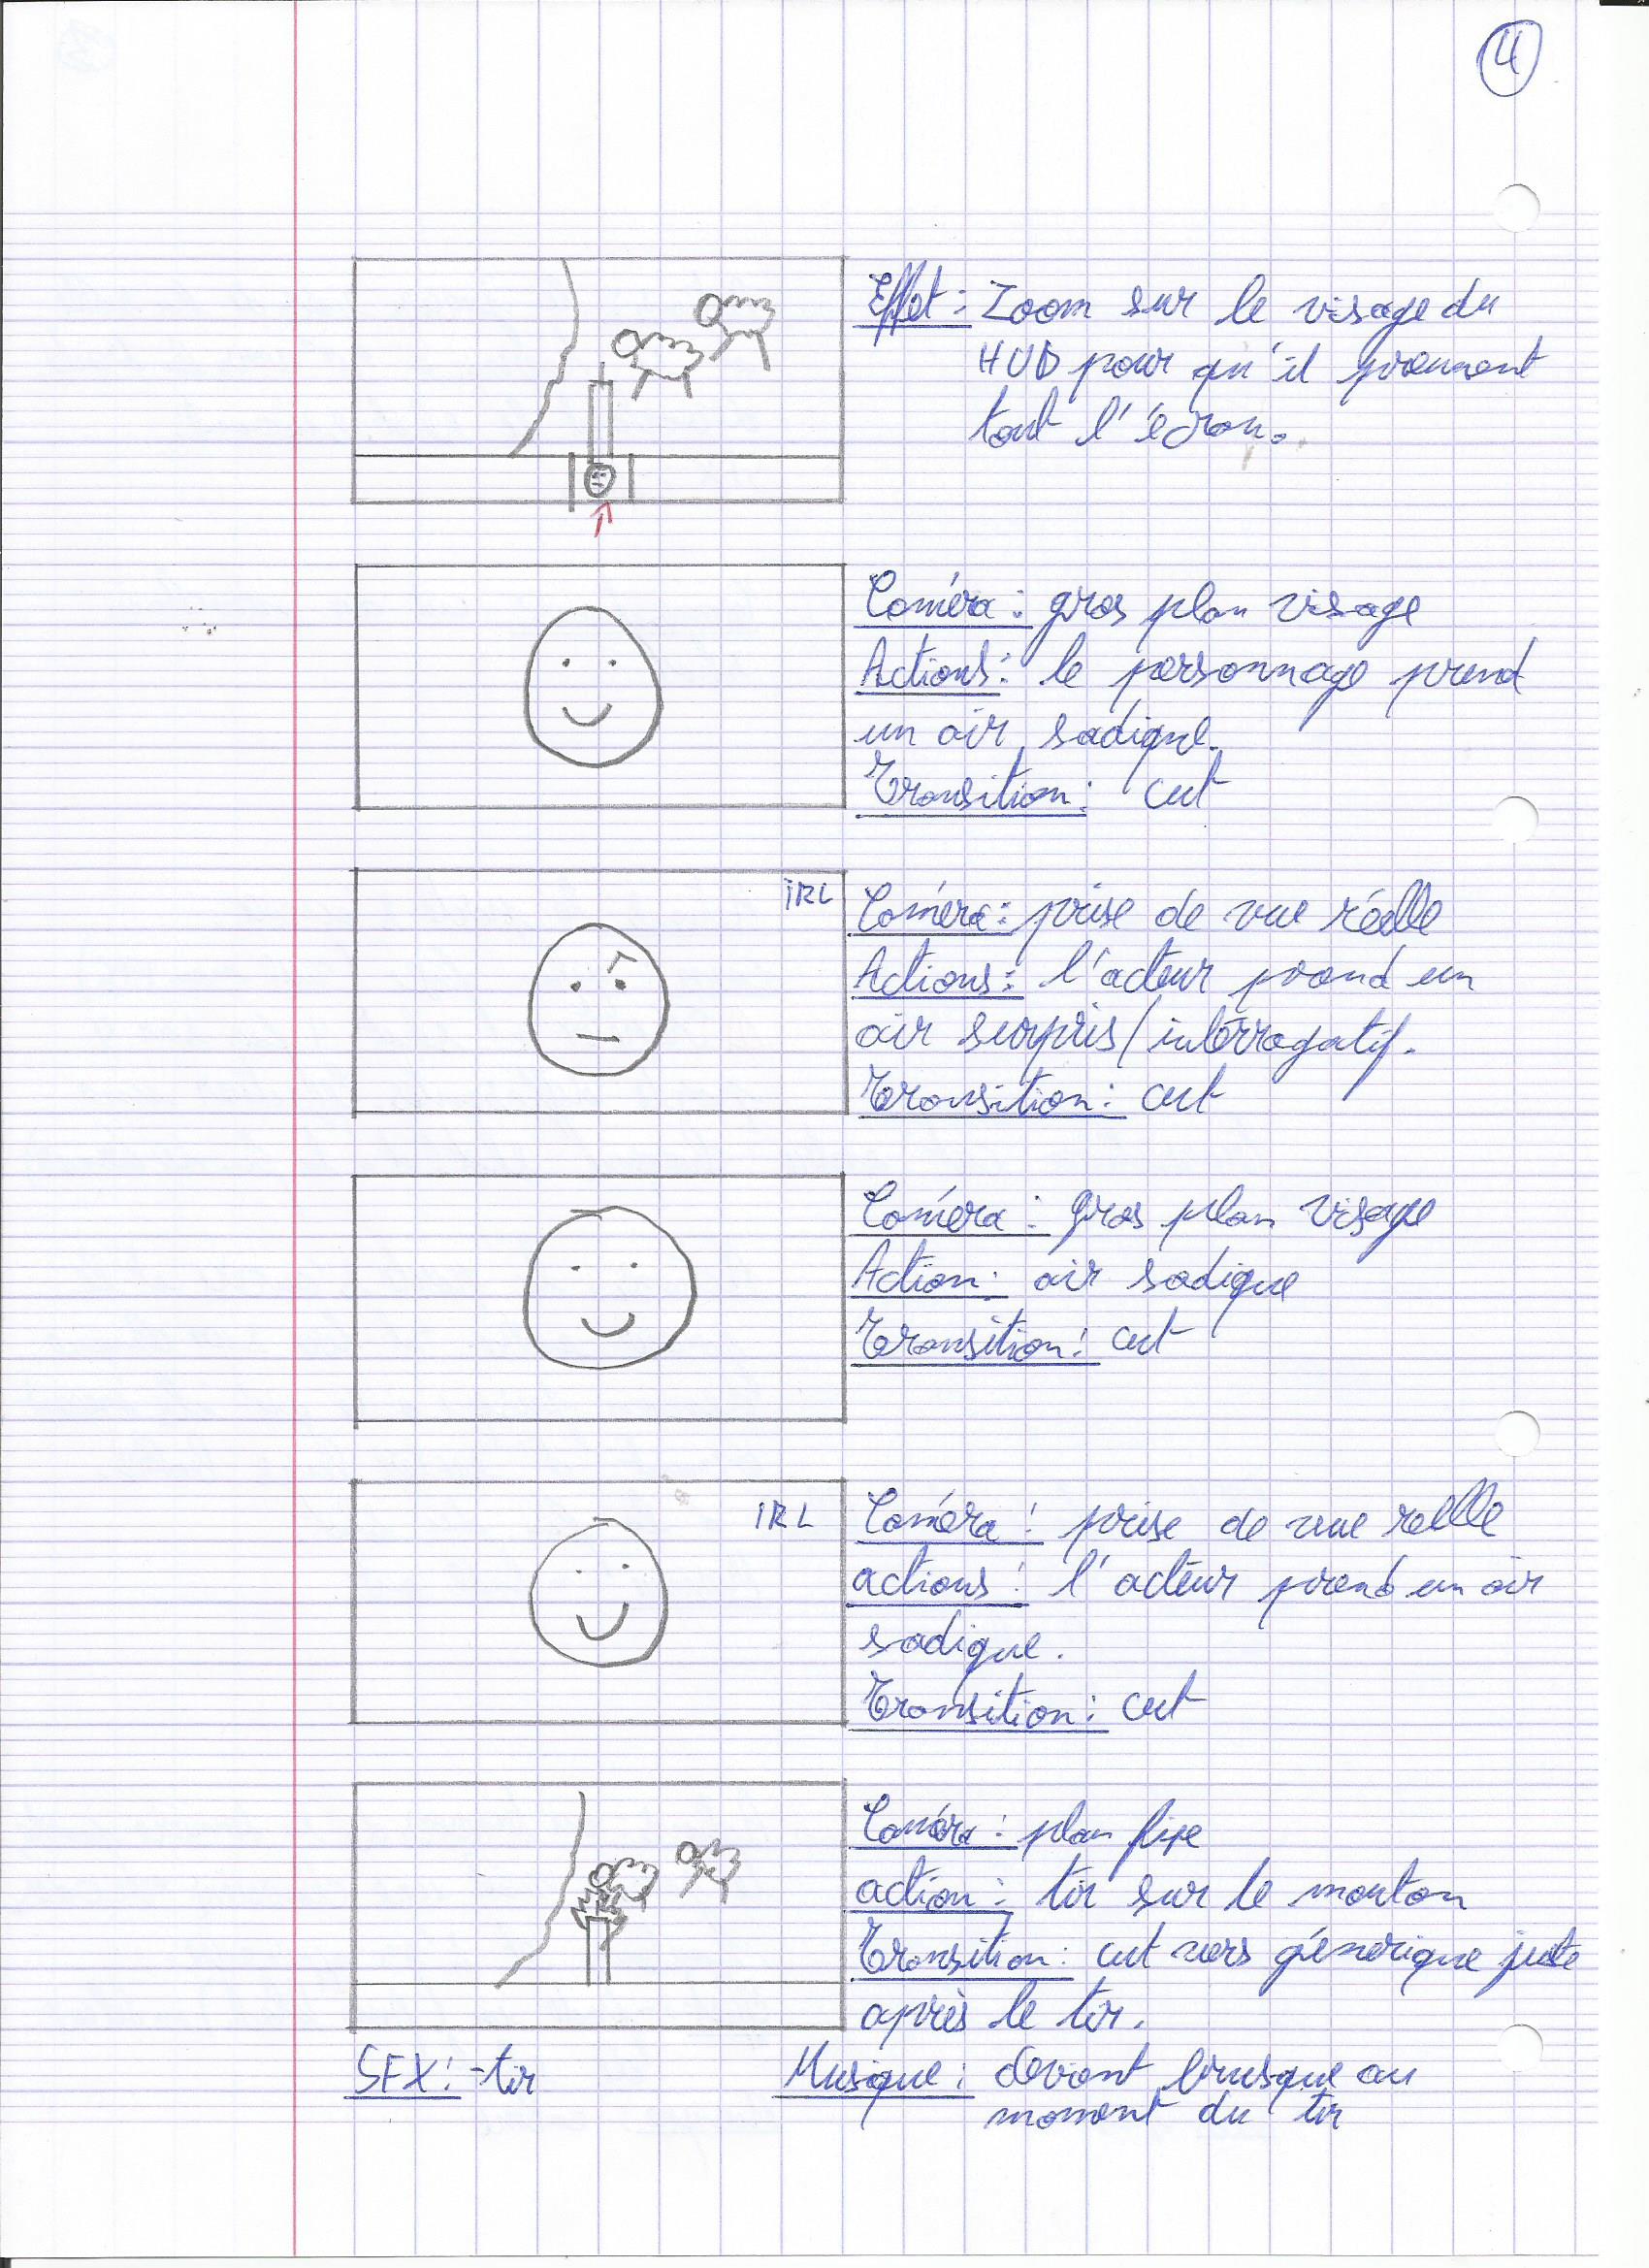 4
Effet : Zoom sur le visage du
HUD pour qu'il prennent
tout l'écran.
Caméra : gros plan visage
Actions : le personnage prend
un air sadique.
Transition : cut
IRL
Caméra : prise de vue réelle
Actions : l'acteur prend un
air surpris/interrogatif.
Transition : cut
Caméra : gros plan visage
Action : air sadique
Transition : cut
IRL
Caméra : prise de vue réelle
actions : l'acteur prend un air
sadique.
Transition : cut
Caméra : plan fixe
action : tir sur le mouton
Transition : cut vers générique juste
après le tir.
SFX : -tir
Musique : devient brusque au
moment du tir